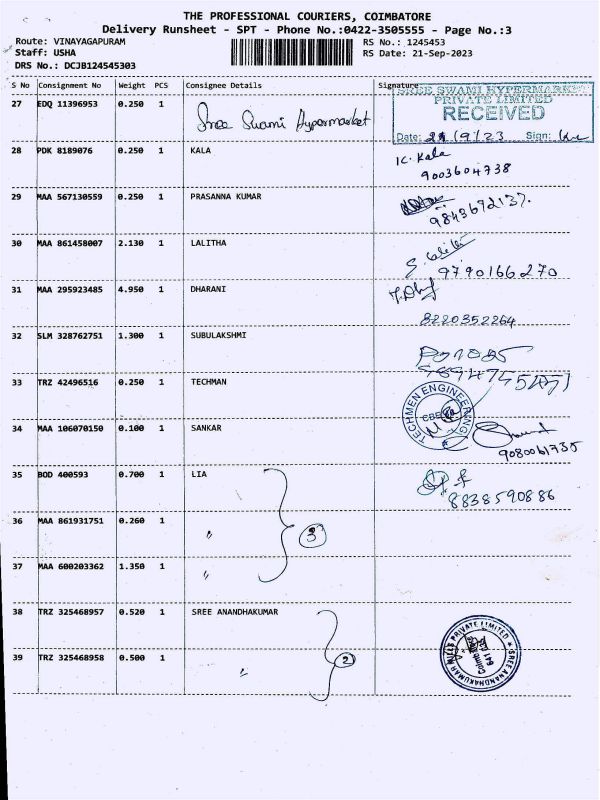 THE PROFESSIONAL COURIERS, COIMBATORE
Delivery Runsheet - SPT - Phone No.:0422-3505555 - Page No.:3
Route: VINAYAGAPURAM RS No.: 1245453
Staff: USHA RS Date: 21-Sep-2023
DRS No.: DCJB124545303
S No Consignment No Weight PCS Consignee Details Signature
SREE SWAMI HYPERMARKET
PRIVATE LIMITED
RECEIVED
27 EDQ 11396953 0.250 1 Sree Swami Hypermarket
Date: 21/9/23 Sign:
28 PDK 8189076 0.250 1 KALA K. Kala
9003604738
29 MAA 567130559 0.250 1 PRASANNA KUMAR
9843692137
30 MAA 861458007 2.130 1 LALITHA
9790166270
31 MAA 295923485 4.950 1 DHARANI
8220352264
32 SLM 328762751 1.300 1 SUBULAKSHMI
33 TRZ 42496516 0.250 1 TECHMAN
TECHMEN ENGINEERING
34 MAA 106070150 0.100 1 SANKAR
9080061735
35 BOD 400593 0.700 1 LIA
8838590886
36 MAA 861931751 0.260 1 〃 3
37 MAA 600203362 1.350 1 〃
38 TRZ 325468957 0.520 1 SREE ANANDHAKUMAR
39 TRZ 325468958 0.500 1 〃 2
SREE ANANDHAKUMAR MILLS PRIVATE LIMITED